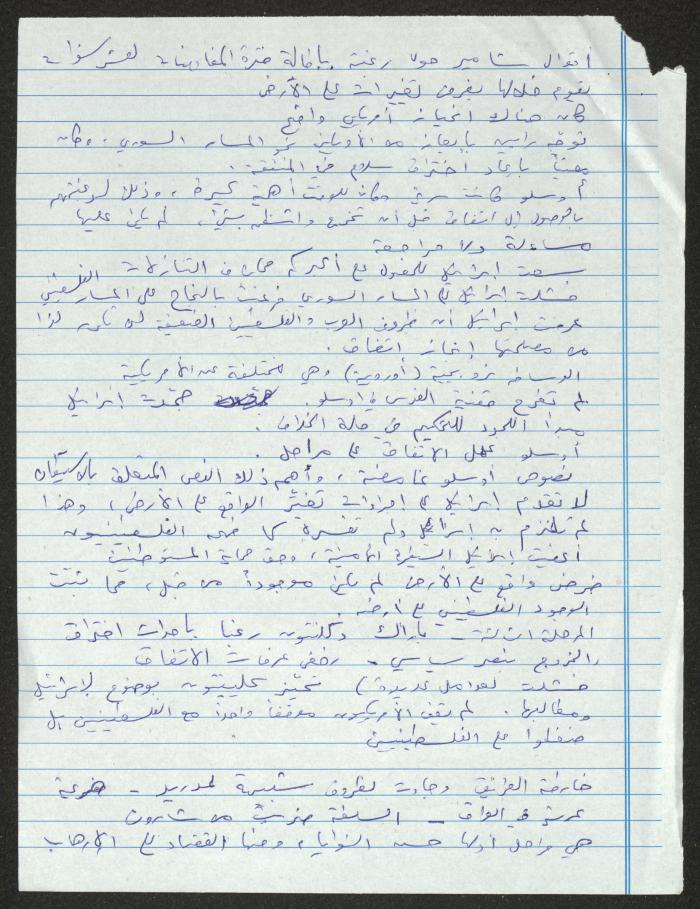 أقوال شامير حول رغبته بإطالة فترة المفاوضات لعشر سنوات
يقوم خلالها بفرض تغييرات على الأرض
كان هناك انحياز أمريكي واضح
توجّه رابين بإيعاز من الأمريكيين نحو المسار السوري، وكان
معنياً بإيجاد اختراق سلام في المنطقة.
أوسلو كانت سرية وكان للوقت أهمية كبيرة، وذلك لرغبتهم
بالوصول إلى اتفاق قبل أن تخرج واشنطن بشيء، لم يكن عليها
مساءلة ولا مراجعة
سعت إسرائيل للحصول على أكبر كم من التنازلات الفلسطينية
فشلت إسرائيل في المسار السوري فرغبت بالنجاح على المسار الفلسطيني
عرفت إسرائيل أن ظروف العرب والفلسطينيين الضعيفة لن تكرر لذا
من مصلحتها إنجاز اتفاق.
الوساطة نرويجية (أوروبية) وهي مختلفة عن الأمريكية
لم تطرح قضية القدس في أوسلو. جمّدت إسرائيل
مبدأ اللجوء للتحكيم في حالة الخلاف.
أوسلو جعل الاتفاق على مراحل.
نصوص أوسلو غامضة، وأهم ذلك النص المتعلق بالاستيطان
لا تقدم إسرائيل على إجراءات تغيّر الواقع على الأرض، وهذا
لم تلتزم به إسرائيل ولم تفسره كما فهمه الفلسطينيون
أعطيت إسرائيل السيطرة الأمنية، وحق حماية المستوطنين
فرض واقع على الأرض لم يكن موجوداً من قبل، مما شتت
الوجود الفلسطيني على أرضه.
المرحلة الثالثة - باراك وكلنتون رغبا بإحداث اختراق
والخروج بنصر سياسي - رفض عرفات الاتفاق
فشلت لعوامل عديدة) تحيّز كلينتون بوضوح لإسرائيل
ومطالبها. لم يقف الأمريكيون موقفاً واحداً مع الفلسطينيين بل
ضغطوا على الفلسطينيين
خارطة الطريق وجاءت لظروف شبيهة لمدريد - هزيمة
عربية في العراق - السلطة ضربت من شارون
هي مراحل أولها حسن النوايا، ومنها القضاء على الإرهاب